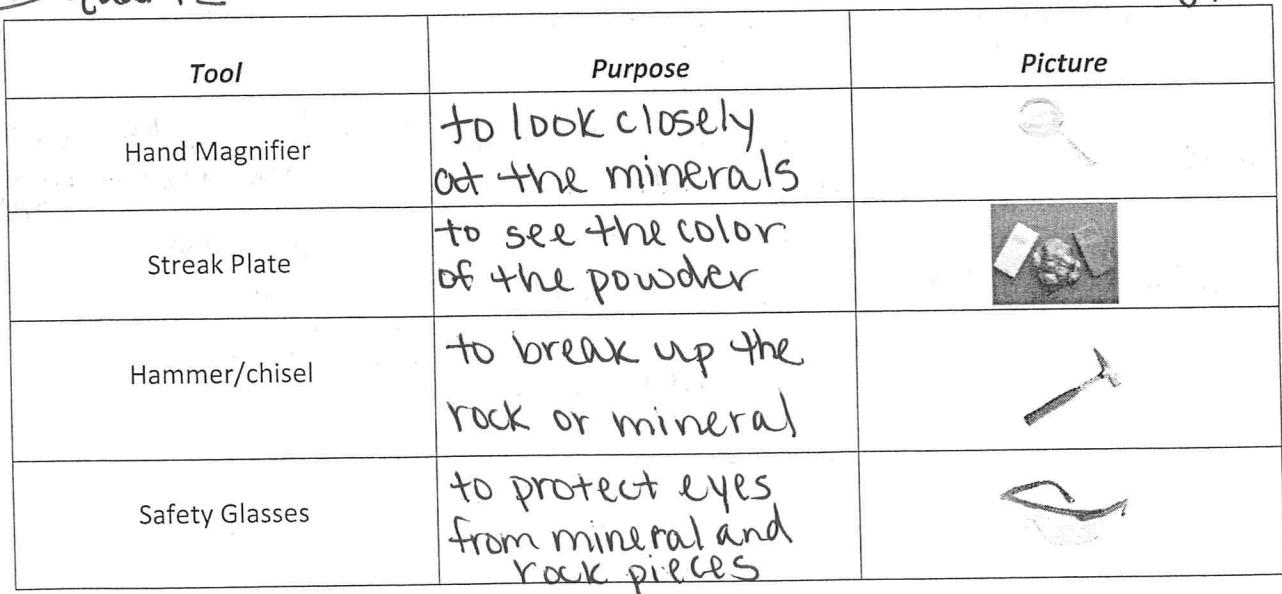 Tool Purpose Picture
Hand Magnifier
to look closely
at the minerals
Streak Plate
to see the color
of the powder
Hammer/chisel
to break up the
rock or mineral
Safety Glasses
to protect eyes
from mineral and
rock pieces